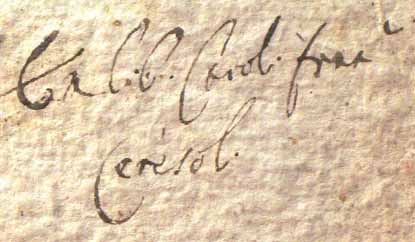 Ex lib. Carol. franc
Ceresol.